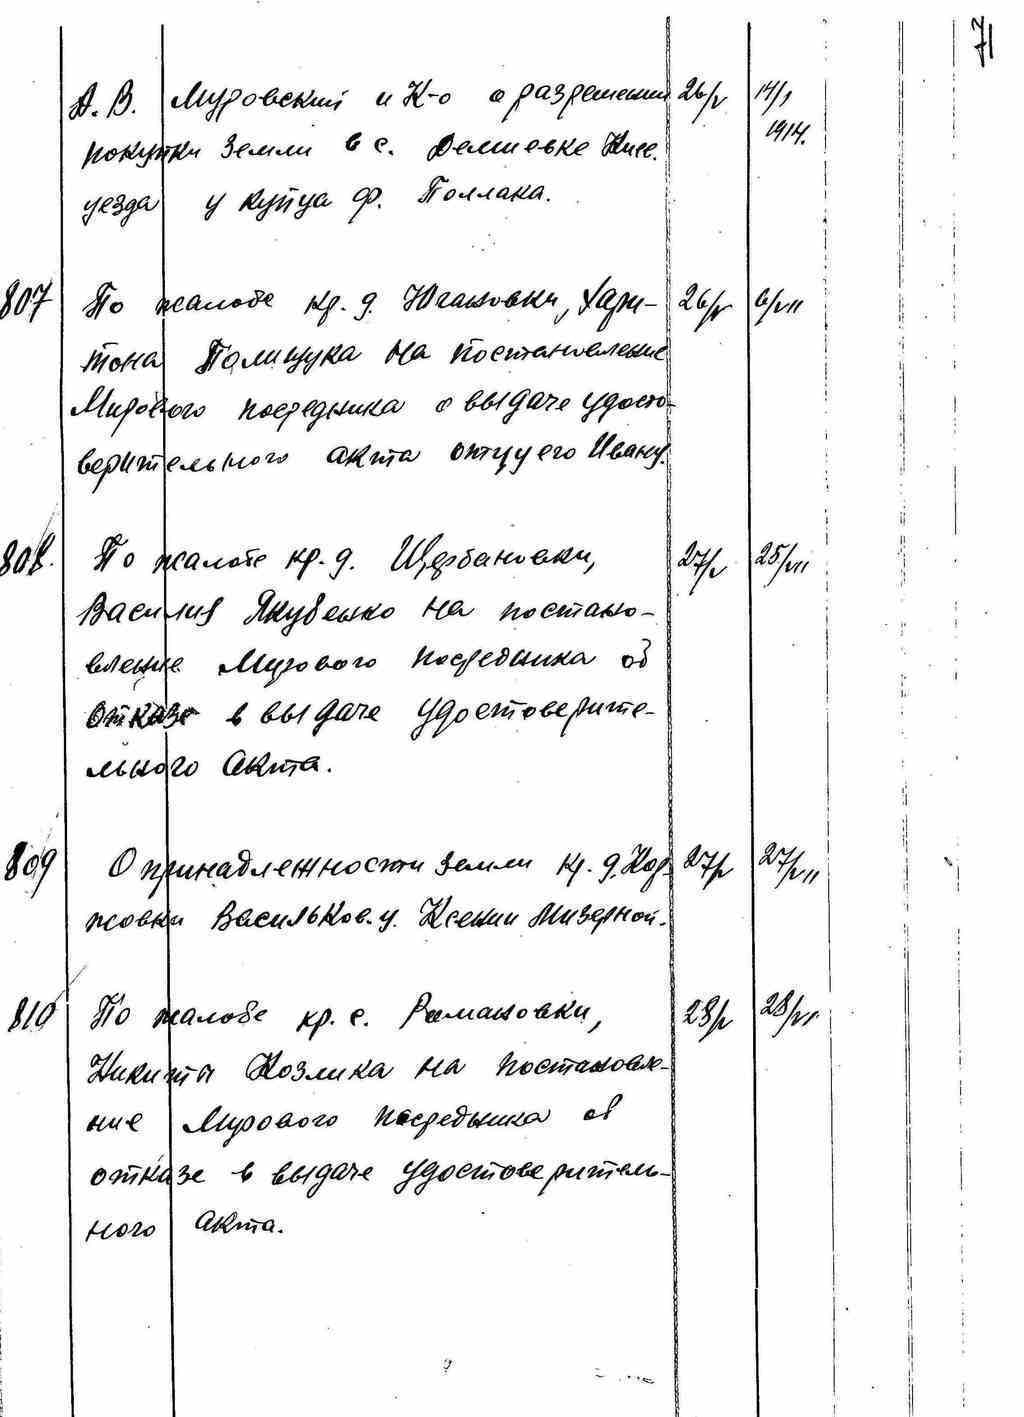 71
А. В. Муровский и К-о о разрешении 26/V 14/I
покупки земли в с. Демиевке Киев. 1914.
уезда у купца Ф. Поллака.
807 По жалобе кр. д. Югановки, Хари- 26/V 6/VII
тона Полищука на постановление
Мирового посредника о выдаче удосто-
верительного акта отцу его Ивану.
808. По жалобе кр. д. Щербановки, 27/V 25/VII
Василия Якубенко на постано-
вление Мирового посредника об
отказе в выдаче удостоверите-
льного акта.
809 О принадлежности земли кр. д. Кор- 27/V 27/VII
жовки Васильков. у. Ксении Мизерной.
810 По жалобе кр. с. Романовки, 28/V 28/VI
Никиты Козлика на постановле-
ние Мирового посредника об
отказе в выдаче удостоверитель-
ного акта.